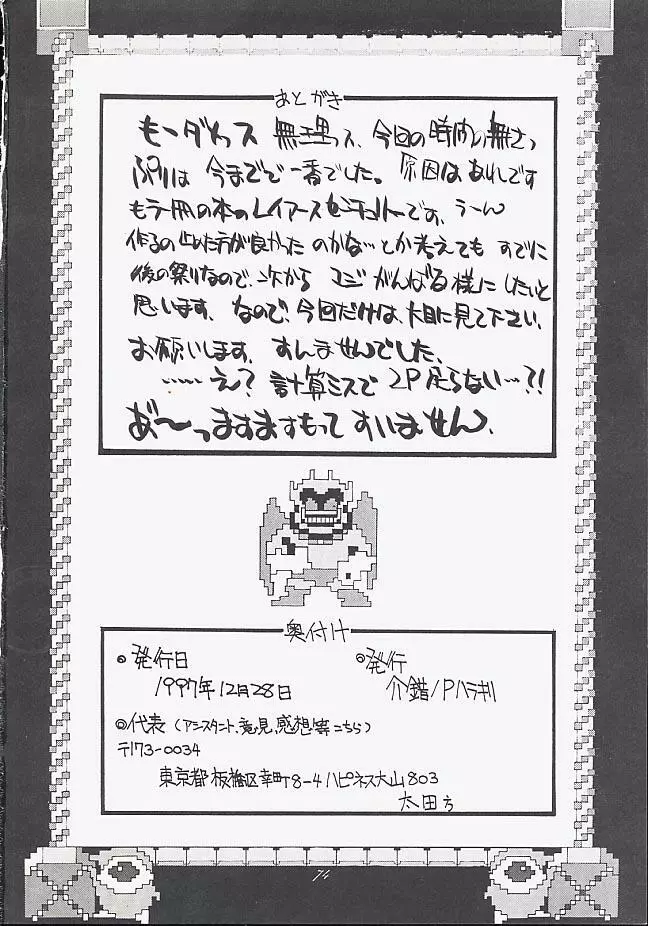 あとがき
もーダメっス 無理っス、今回の時間の無さっ
ぷりは 今までで一番でした。原因はあれです
もう一冊の本のレイアース です。うーん
作るの止めた方が良かった のかな…とか考えても すでに
後の祭りなので、次から マジ がんばる様に したいと
思います、なので、今回だけは、大目に見て下さい、
お願いします、すんませんでした、
……え? 計算ミスで 2P足らない…?!
あ゛〜っますますもって すいません、
奥付け
◎発行日
1997年12月28日
◎発行
介錯/Pハラキリ
◎代表(アシスタント、意見、感想等こちら)
〒173-0034
東京都板橋区幸町8-4ハピネス大山803
太田方
74